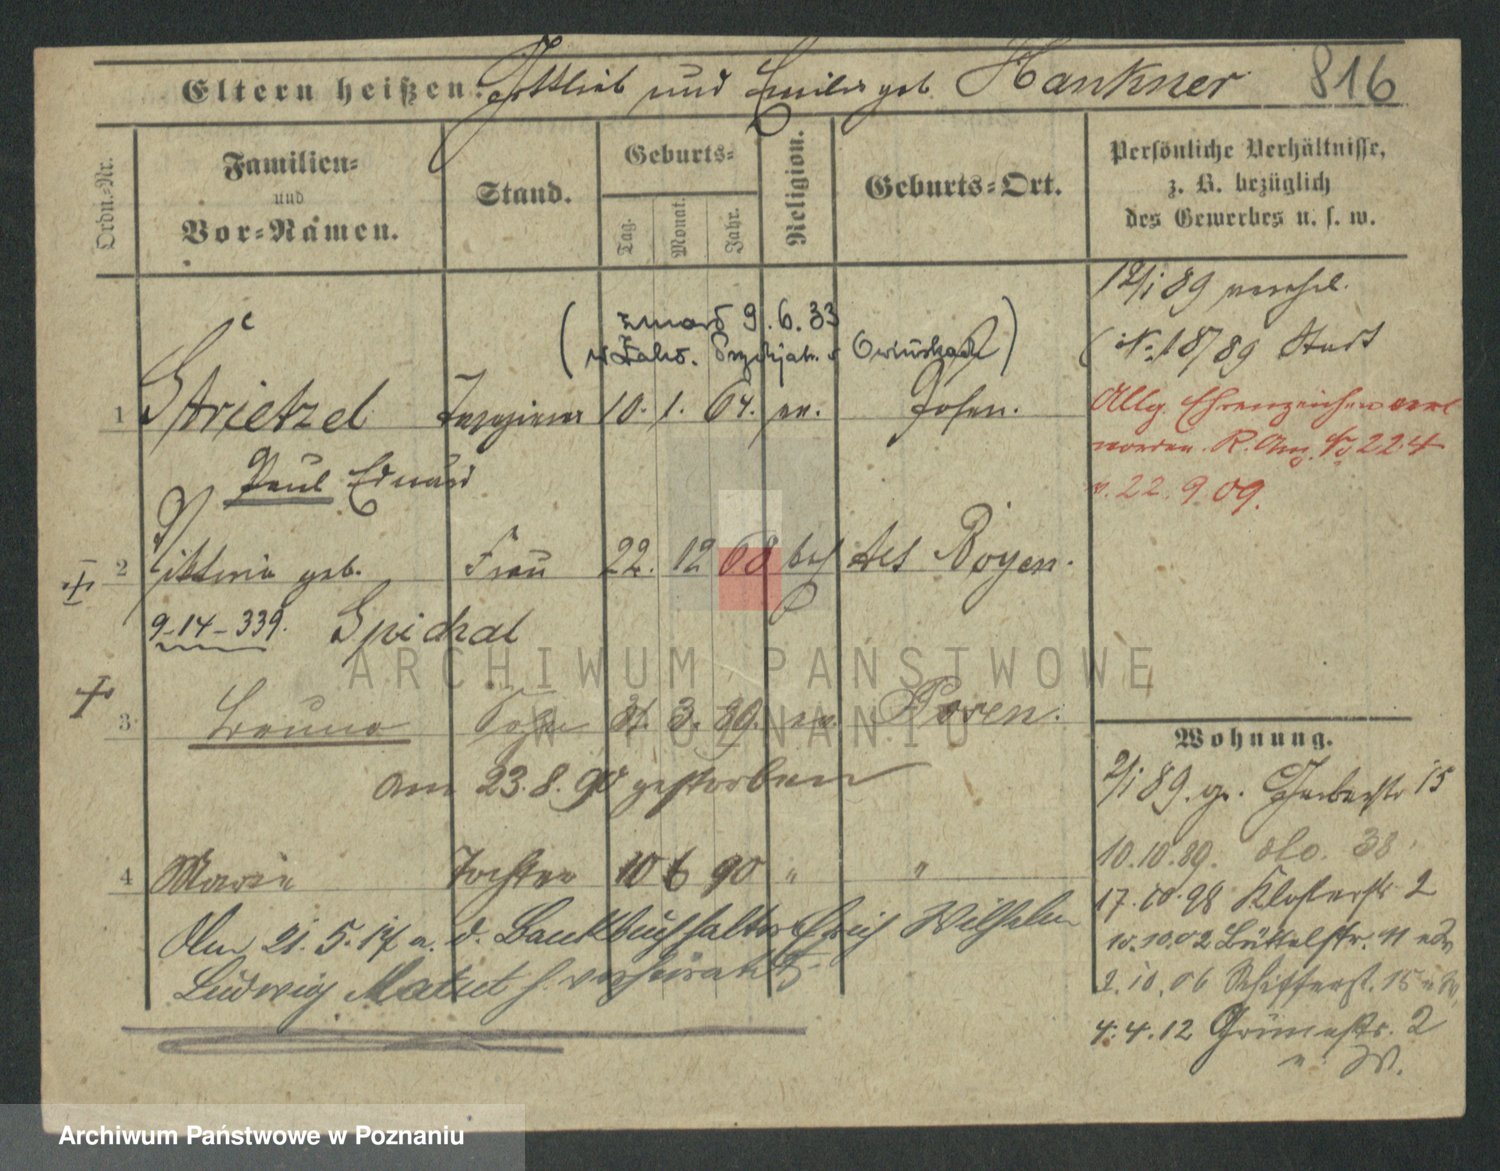 Eltern heißen: Gottlieb und Emilie geb. Hankner 816
Ordn.-Nr.
Familien-
und
Vor-Namen.
Stand.
Geburts-
Tag.
Monat.
Jahr.
Religion.
Geburts-Ort.
Persönliche Verhältnisse,
z. B. bezüglich
des Gewerbes u. s. w.
12/1 89 verehel.
( zmarł 9.6.33
w Zakł. Psychjatr. w Owińskach )
(No. 18/89 Stadt
1 Strietzel 10. 1. 64. ev. Posen.
Paul Eduard
Allg. Ehrenzeichen verl.
worden. R. Anz. No 224
v. 22.9.09.
2 Viktoria geb. Frau 22. 12 68 kath
9-14-339. Spichal
3 Bruno Sohn 31. 3. 89. ev. Posen.
am 23.8.90 gestorben
4 Marie Tochter 10 6 90 " "
Am 21.5.17 a. d. Bankbuchhalter Erich Wilhelm
Ludwig verheiratet.
Wohnung.
2/1 89. gr. Gerberstr 15
10.10.89. dto. 38
17.10.98 Klosterstr. 2
10.10.02 Büttelstr. 11
2.10.06 Schifferst. 15
4.4.12 Grünestr. 2
ARCHIWUM PAŃSTWOWE
W POZNANIU
Archiwum Państwowe w Poznaniu